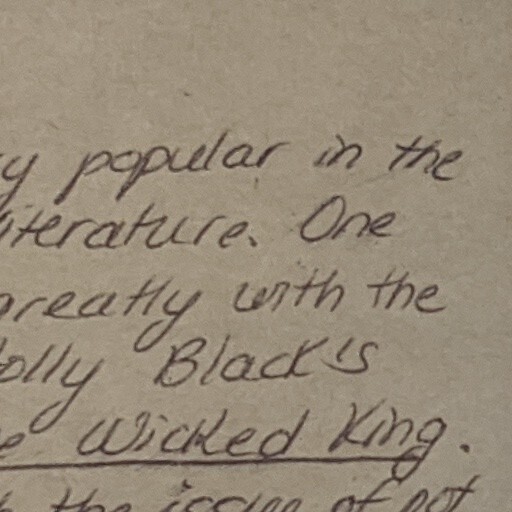 y popular in the
iterature. One
greatly with the
olly Black's
e Wicked King.
the issue of not